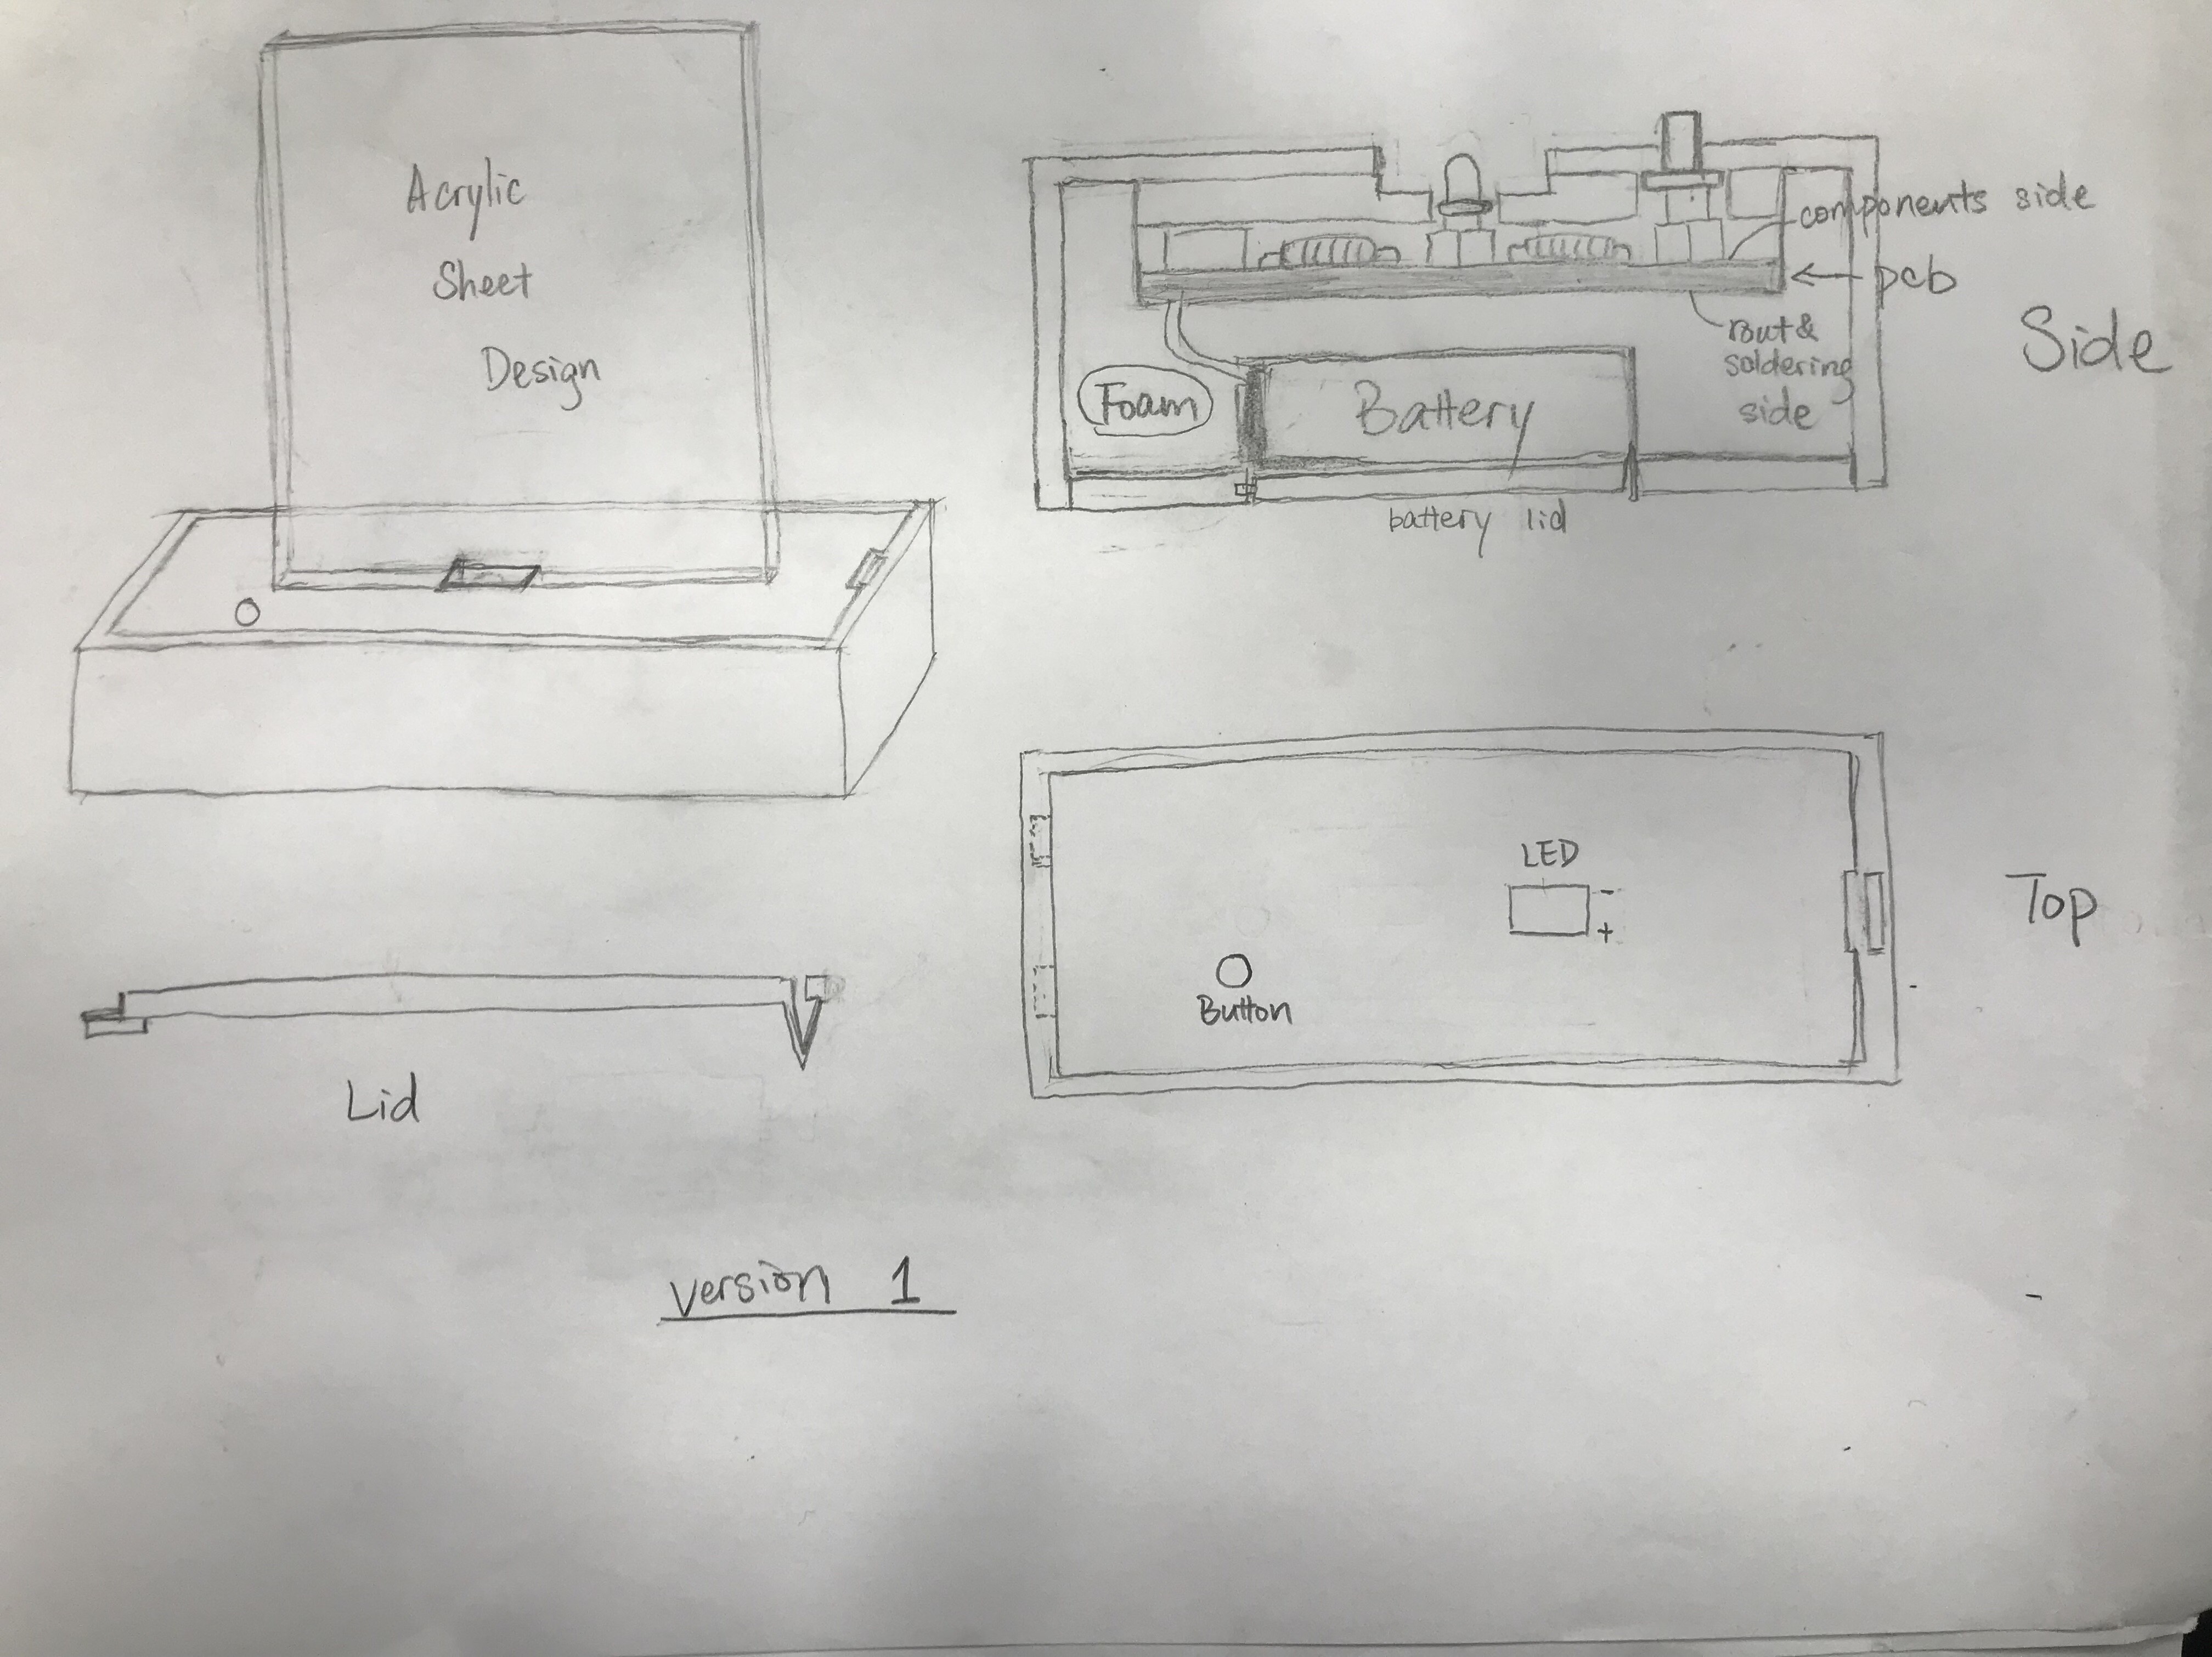 Acrylic
Sheet
Design
components side
pcb
rout &
soldering
side
Side
Foam
Battery
battery lid
LED
-
+
Button
Top
Lid
version 1